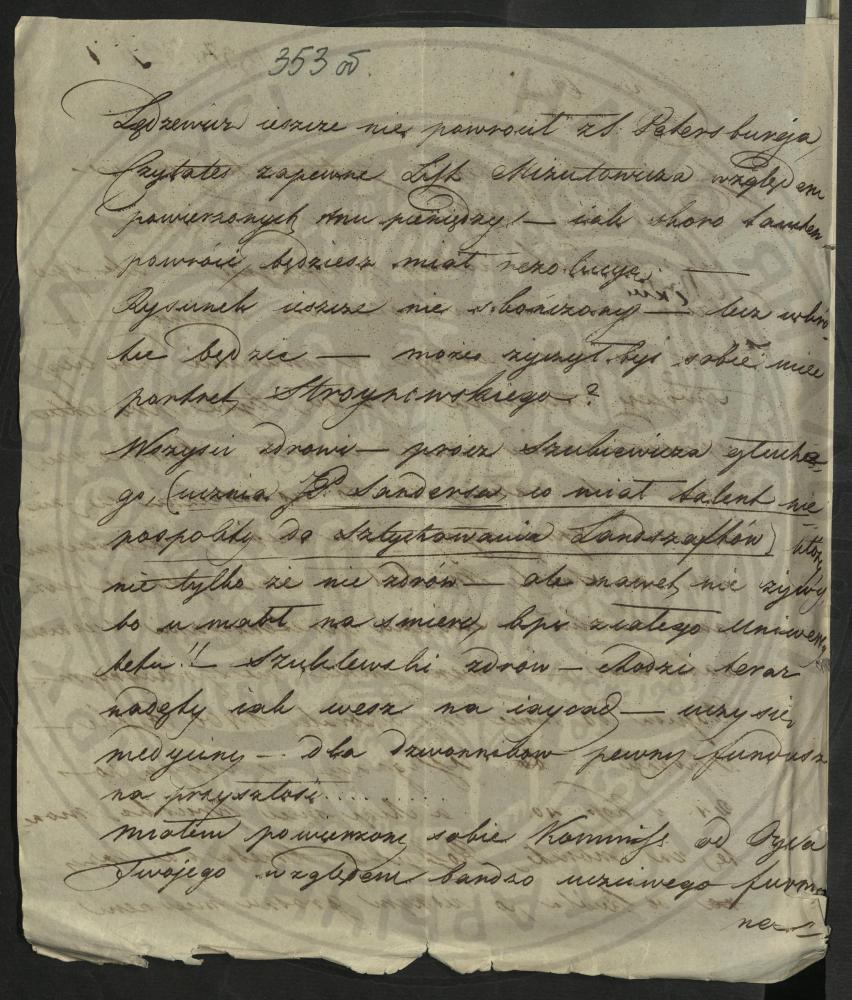 353 об.
Lędzewicz ieszcze nie powrócił z S. Petersburga,
Czytałeś zapewne List Mizutowicza względem
powierzonych mu pieniędzy! — iak skoro tamten
powróci, będziesz miał rezolucyę. —
Rysunek ieszcze nie skończony — lecz wkró-
tce będzie — może życzył byś sobie mieć
portret, Stroynowskiego?
Wszyscy zdrowi — prócz Szubiewicza głucha-
go, (ucznia JP. Sandersa co miał talent nie
pospolity do Sztychowania Landszaftów) który
nie tylko że nie zdrów — ale nawet, nie żywy,
bo umarł na śmierć, był z całego Uniwersy
tetu!! — Szuklewski zdrów — chodzi teraz
nadęty iak wesz na iaycach — uczy się
medycyny — dla dzwonników pewny fundusz
na przyszłość . . . . . . .
miałem powierzony sobie Kommiss od Oyca
Twojego względem bardzo uczciwego furma
na —